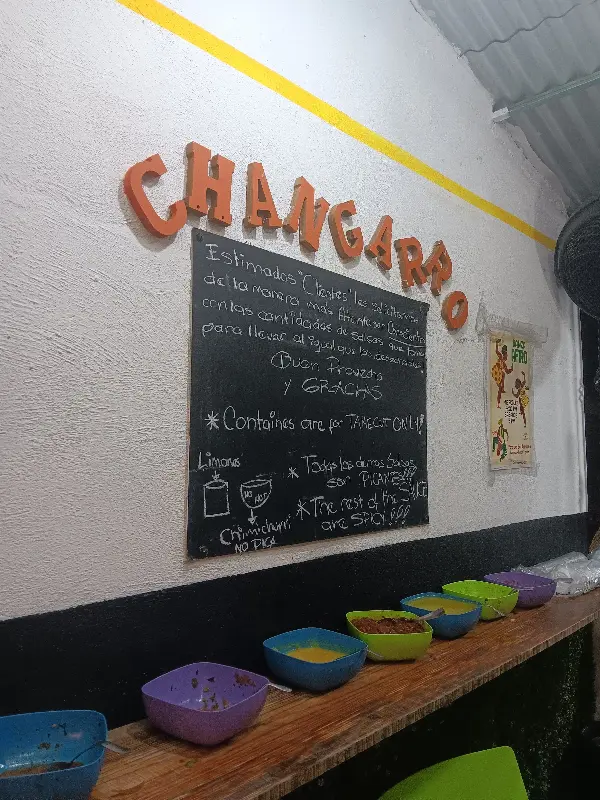 CHANGARRO
Estimados "Clientes" les solicitamos
de la manera más Atenta ser Conscientes
con las cantidades de salsas que toman
para llevar al igual que los desechables
Buen Provecho
Y GRACIAS
*Containes are for TAKEOUT ONLY!
Limones
NO NOT
Chimichurri
NO PICA
* Todas las demas Salsas
son PICANTES!!!
*The rest of the SAUCE
are SPICY!!!!
AFRO